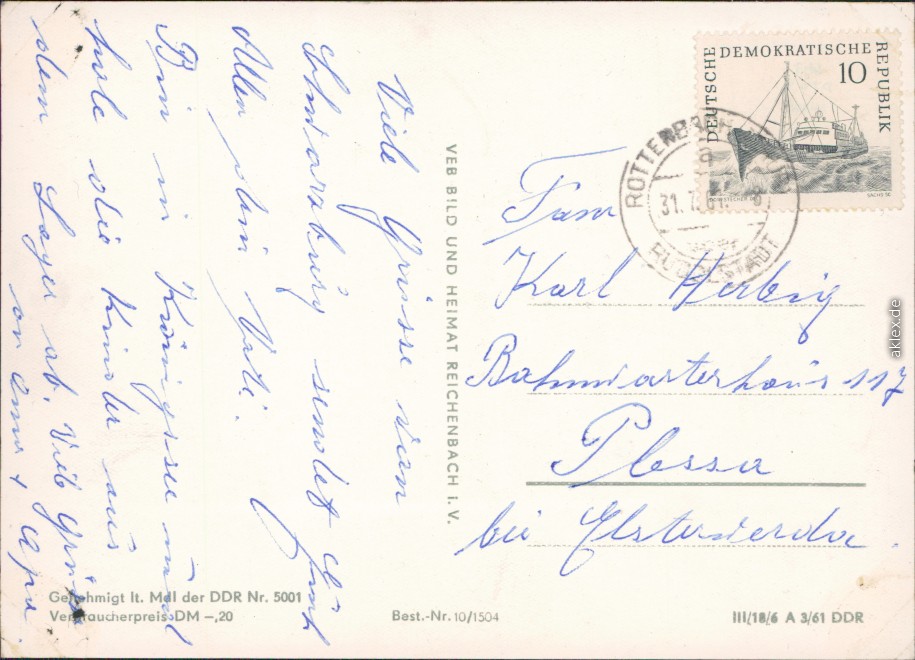 Viele Grüsse von
Schwarzburg sendet Euch
Allen dein Vati.
Bin in Königssee und
hole die Kinder aus
dem Lager ab. Viele Grüsse
von Oma + Opa.
VEB BILD UND HEIMAT REICHENBACH i. V.
DEUTSCHE DEMOKRATISCHE REPUBLIK
10
ROTTENBACH
a
31. 7. 61. - 8
RUDOLSTADT
Fam
Karl Herbig
Bahnwärterhaus 117
Plessa
bei Elsterwerda.
Genehmigt lt. MdI der DDR Nr. 5001
Verbraucherpreis DM –,20
Best.-Nr. 10/1504
III/18/6 A 3/61 DDR
aklex.de